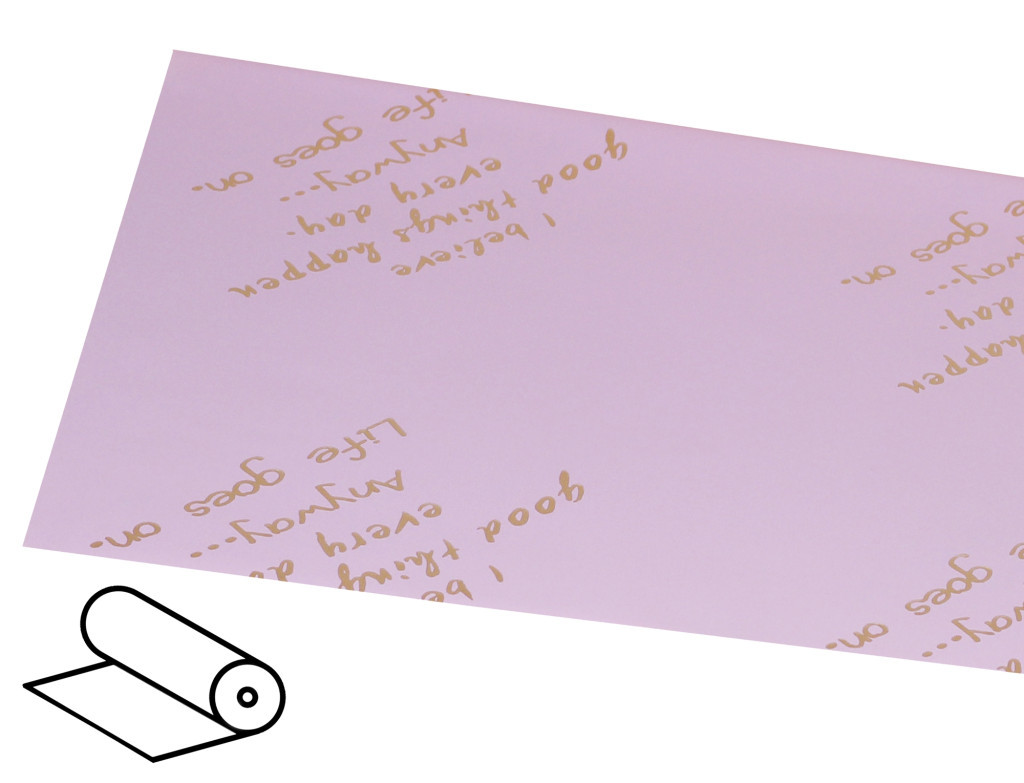 I believe
good things happen
every day.
Anyway...
ife goes on.
happen
day.
way...
e goes on.
I be
good thing
every da
Anyway...
Life goes on.
way...
e goes on.